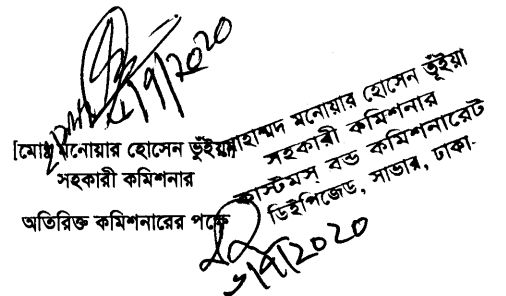 ৯/২০২০
[মোঃ মনোয়ার হোসেন ভূঁইয়া]
সহকারী কমিশনার
অতিরিক্ত কমিশনারের পক্ষে
মোহাম্মদ মনোয়ার হোসেন ভূঁইয়া
সহকারী কমিশনার
কাস্টমস্ বন্ড কমিশনারেট
ডিইপিজেড, সাভার, ঢাকা.
৬/৯/২০২০